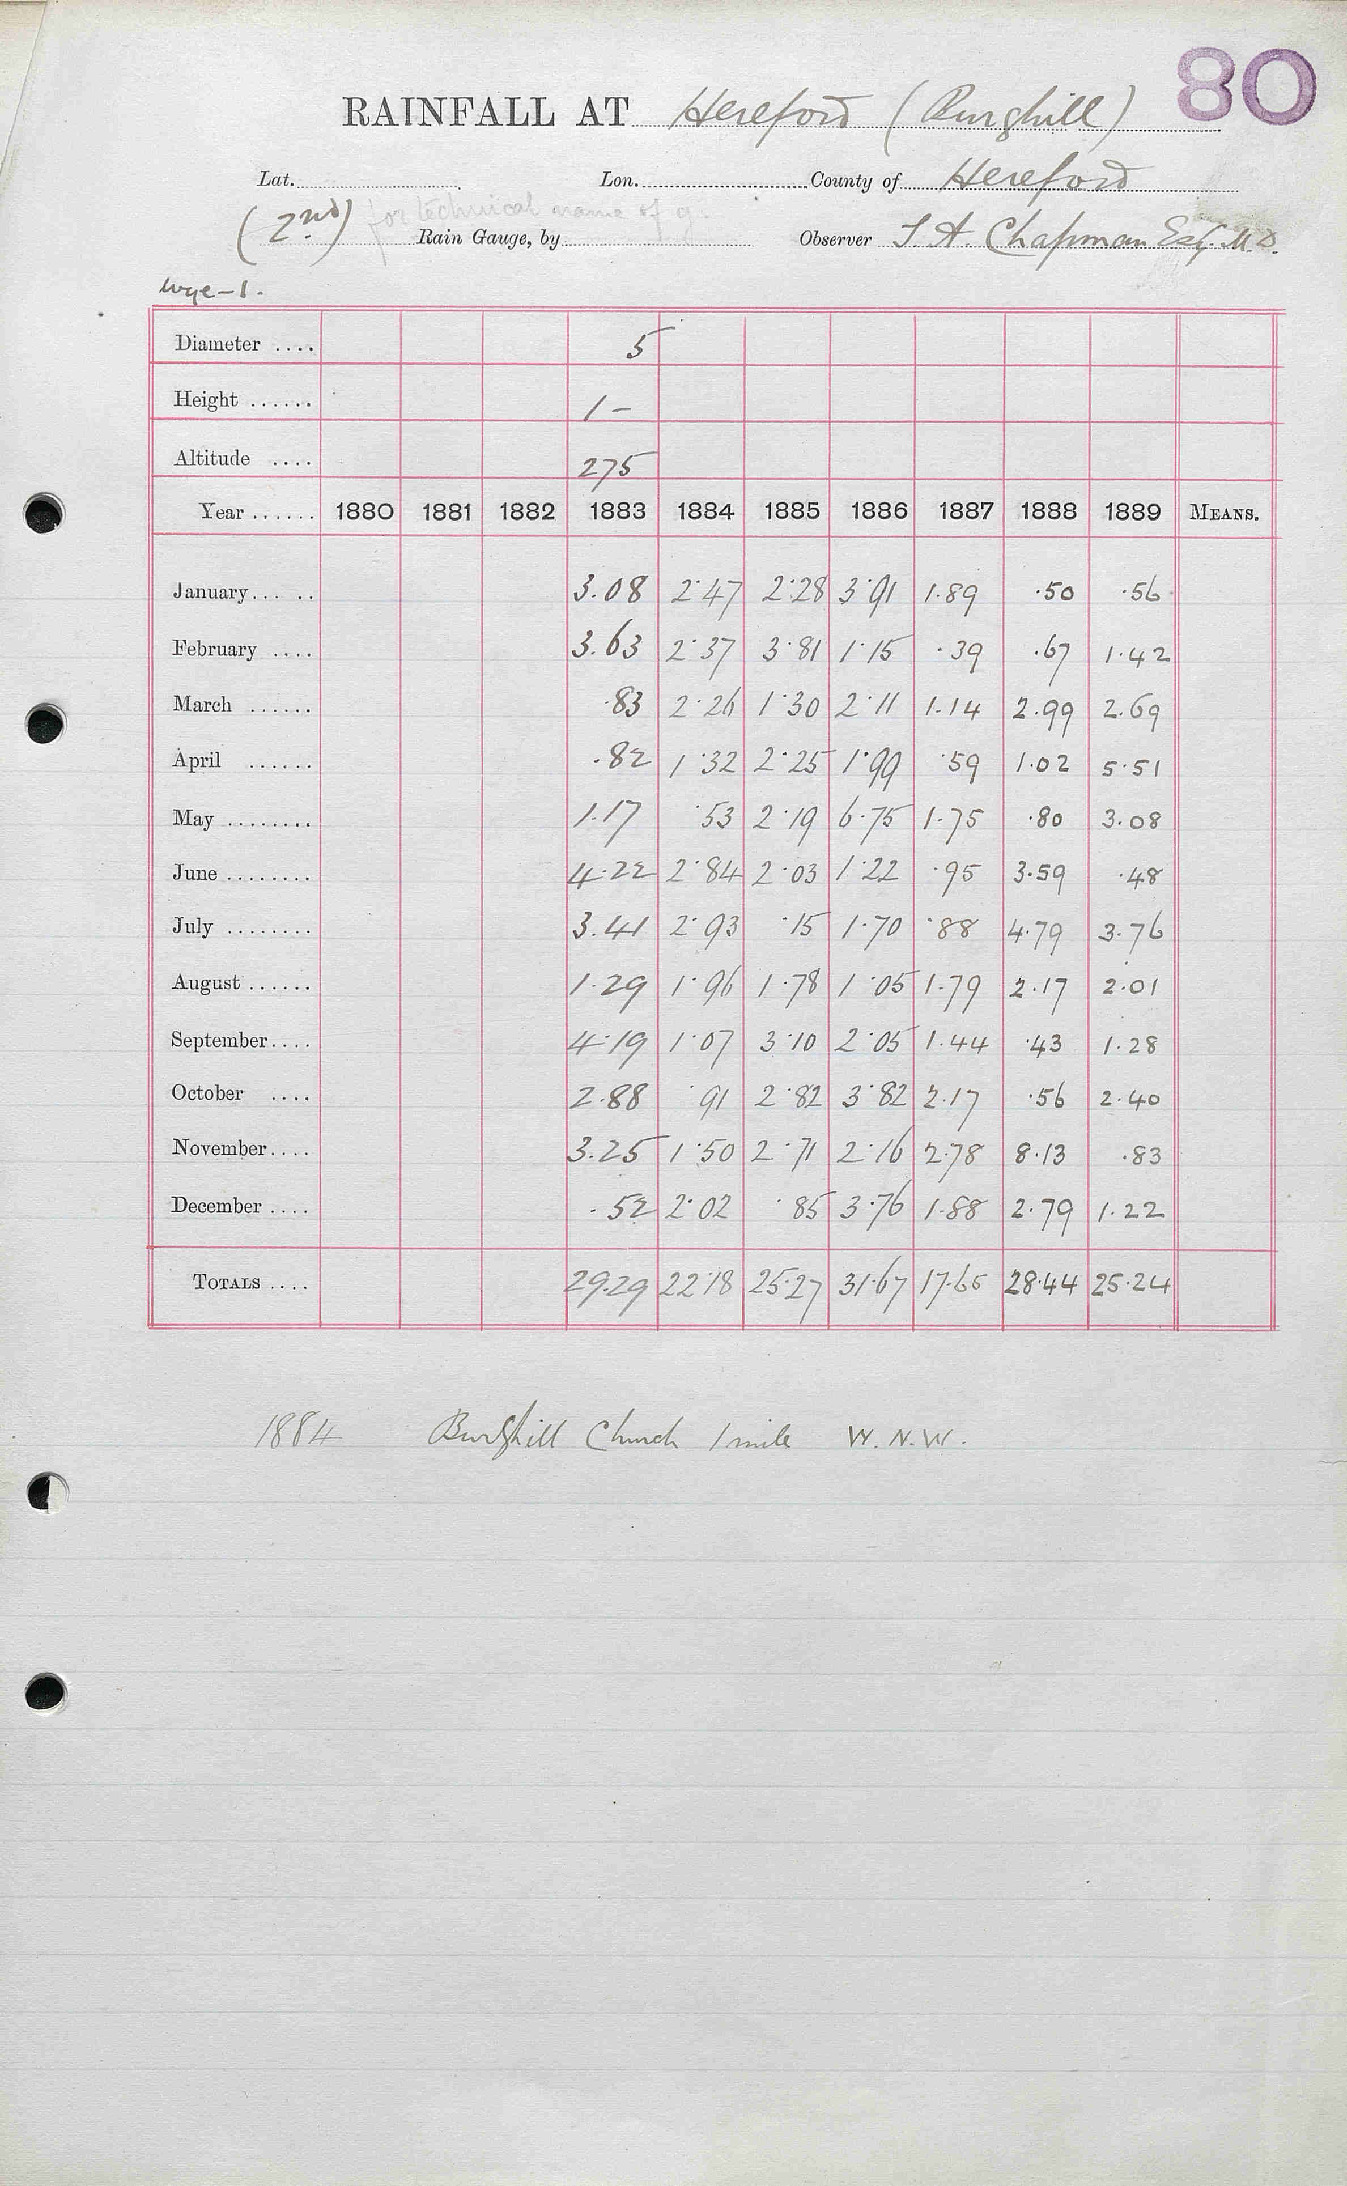 80
RAINFALL AT Hereford (Burghill)
Lat. Lon. County of Hereford
(2nd) for technical name of g.
Rain Gauge, by Observer T. A. Chapman Esq. M.D.
Wye-1.
Diameter .... 5
Height ...... 1 -
Altitude .... 275
Year ...... 1880 1881 1882 1883 1884 1885 1886 1887 1888 1889 MEANS.
January... .. 3.08 2.47 2.28 3.91 1.89 .50 .56
February .... 3.63 2.37 3.81 1.15 .39 .67 1.42
March ...... .83 2.26 1.30 2.11 1.14 2.99 2.69
April ...... .82 1.32 2.25 1.99 .59 1.02 5.51
May ........ 1.17 .53 2.19 6.75 1.75 .80 3.08
June ........ 4.22 2.84 2.03 1.22 .95 3.59 .48
July ........ 3.41 2.93 .15 1.70 .88 4.79 3.76
August ...... 1.29 1.96 1.78 1.05 1.79 2.17 2.01
September.... 4.19 1.07 3.10 2.05 1.44 .43 1.28
October .... 2.88 .91 2.82 3.82 2.17 .56 2.40
November.... 3.25 1.50 2.71 2.16 2.78 8.13 .83
December .... .52 2.02 .85 3.76 1.88 2.79 1.22
TOTALS .... 29.29 22.18 25.27 31.67 17.65 28.44 25.24
1884 Burghill Church 1 mile W.N.W.